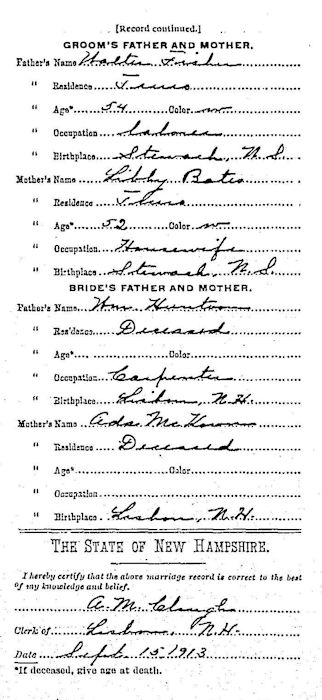 [Record continued.]
GROOM'S FATHER AND MOTHER.
Father's Name Walter Fisher
" Residence Truro
" Age* 54 Color w
" Occupation Laborer
" Birthplace Stewiack, N.S.
Mother's Name Libby Bates
" Residence Truro
" Age* 52 Color w
" Occupation Housewife
" Birthplace Stewiack, N.S.
BRIDE'S FATHER AND MOTHER.
Father's Name Wm Huntoon
" Residence Deceased
" Age* Color
" Occupation Carpenter
" Birthplace Lisbon, N.H.
Mother's Name Ada
" Residence Deceased
" Age* Color
" Occupation
" Birthplace Lisbon, N.H.
THE STATE OF NEW HAMPSHIRE.
I hereby certify that the above marriage record is correct to the best
of my knowledge and belief.
A. M. Clough
Clerk of Lisbon, N.H.
Date Sept 15 1913
*If deceased, give age at death.